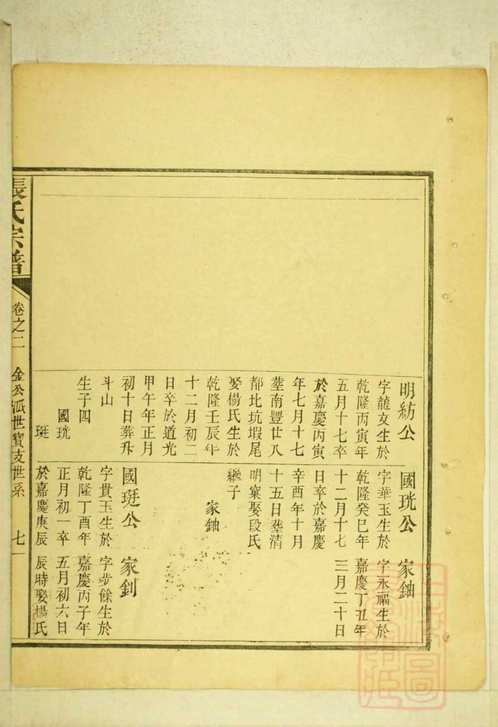 明紡公
字龍友生於
乾隆丙寅年
五月十七卒
於嘉慶丙寅
年七月十七
塟南豐廿八
都北坑塅尾
娶楊氏生於
乾隆壬辰年
十二月初二
日辛於道光
甲午年正月
初十日葬斗
斗山
生子四
國珖
珽
國珖公
字華玉生於
乾隆癸巳年
十二月十七
日辛於嘉慶
辛酉年十月
十五日塟清
明窠娶段氏
繼子
家鈾
國珽公
字貴玉生於
乾隆丁酉年
正月初一卒
於嘉慶庚辰
家鈾
字永福生於
嘉慶丁丑年
三月二十日
家釗
字步餘生於
嘉慶丙子年
五月初六日
辰時娶楊氏
張氏宗譜
卷之二
金公派世寶支世系
七